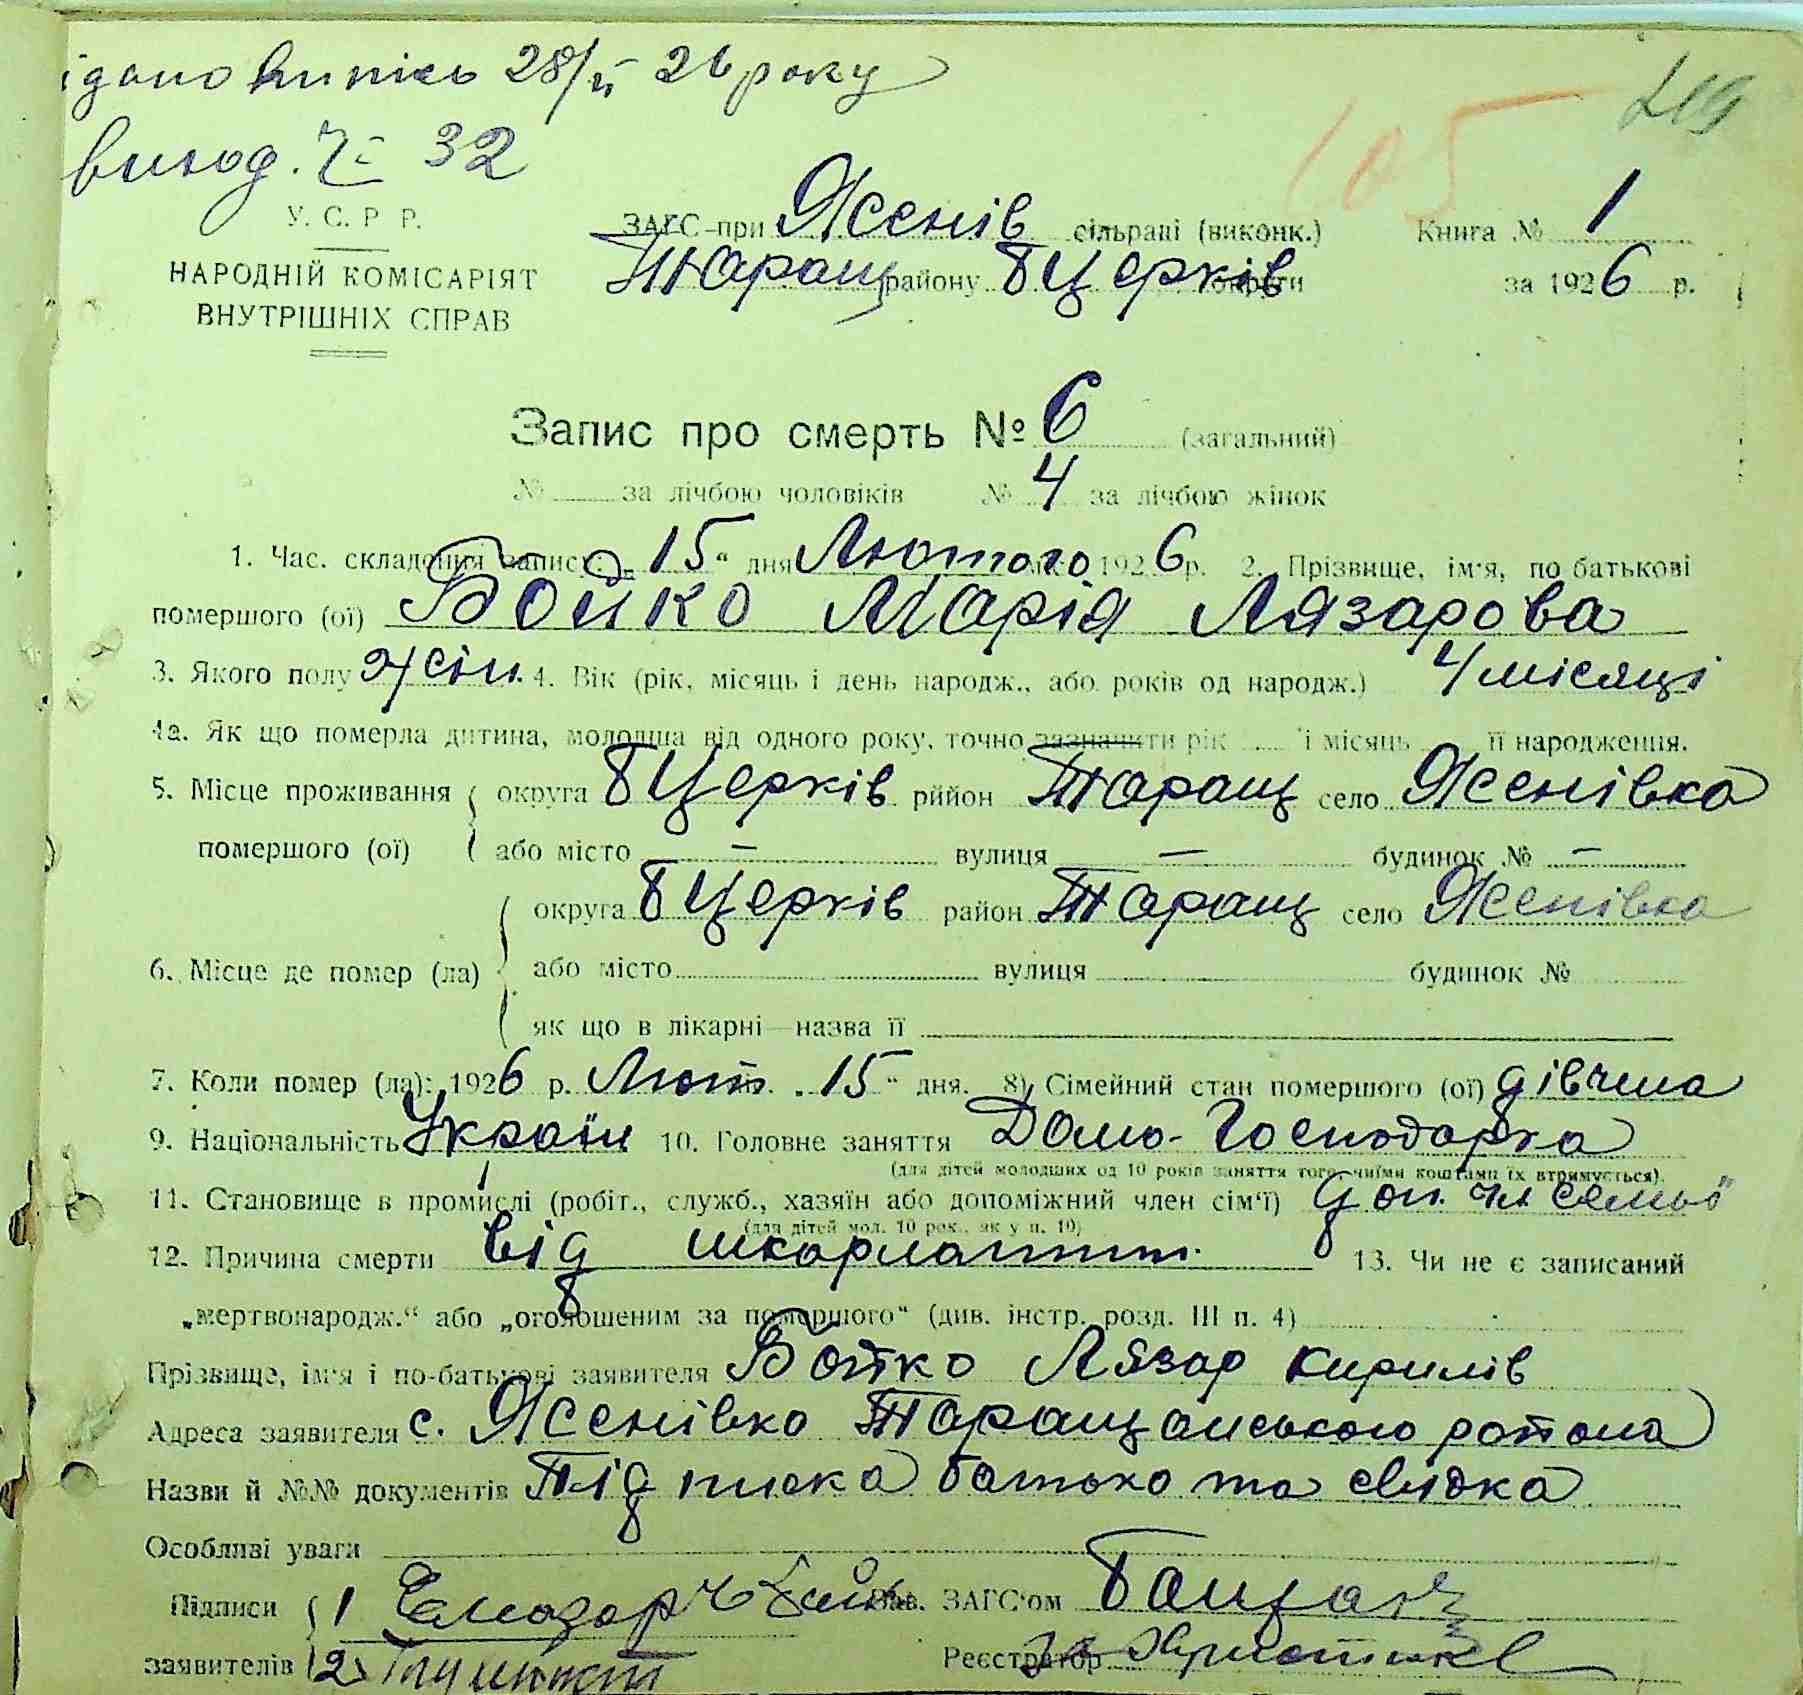 випись 28/II 26 року
виход. Ч 32
105
У. С. Р Р.
НАРОДНІЙ КОМІСАРІЯТ
ВНУТРІШНІХ СПРАВ
ЗАГС-при Ясенів сільраді (виконк.) Книга № 1
Таращ району БЦерків округи за 1926 р.
Запис про смерть № 6 (загальний)
№ за лічбою чоловіків № 4 за лічбою жінок
1. Час. складення запису: „15“ дня Лютого 1926 р. 2. Прізвище, ім'я, по батькові
помершого (ої) Бойко Марія Лязарова
3. Якого полу жін. 4. Вік (рік, місяць і день народж., або років од народж.) 4 місяці
4а. Як що померла дитина, молодша від одного року, точно зазначити рік і місяць її народження.
5. Місце проживання округа БЦерків рйион Таращ село Ясенівка
помершого (ої) або місто — вулиця — будинок № —
округа БЦерків район Таращ село Ясенівка
6. Місце де помер (ла) або місто вулиця будинок №
як що в лікарні—назва її
7. Коли помер (ла): 1926 р. Лют. „15“ дня. 8) Сімейний стан помершого (ої) дівчина
9. Національність Україн 10. Головне заняття Домо-Господарка
(для дітей молодших од 10 років заняття того, чиїми коштами їх втримується).
11. Становище в промислі (робіт., служб., хазяїн або допоміжний член сім'ї) доп. чл семьї
(для дітей мол. 10 рок., як у п. 10)
12. Причина смерти від шкорлатти. 13. Чи не є записаний
„мертвонародж.“ або „оголошеним за помершого“ (див. інстр. розд. III п. 4)
Прізвище, ім'я і по-батькові заявителя Бойко Лязар Кирилів
Адреса заявителя с. Ясенівка Таращанського района
Назви й №№ документів Підписка батька та свидка
Особливі уваги
Підписи 1 Елиазар Зав. ЗАГС'ом
заявителів 2 Реєстратор